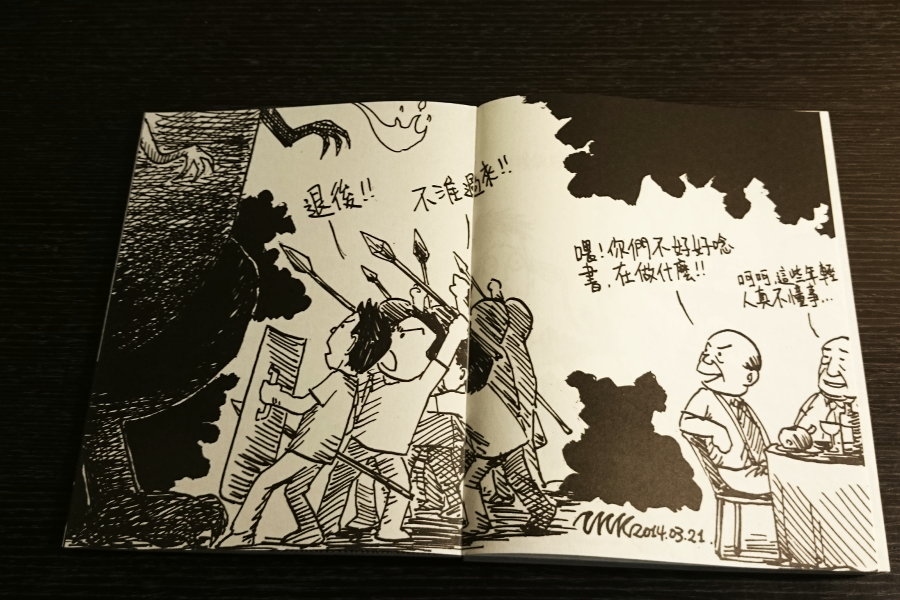 退後!!
不准過來!!
喂!你們不好好唸
書,在做什麼!!
呵呵,這些年輕
人真不懂事...
2014.03.21.